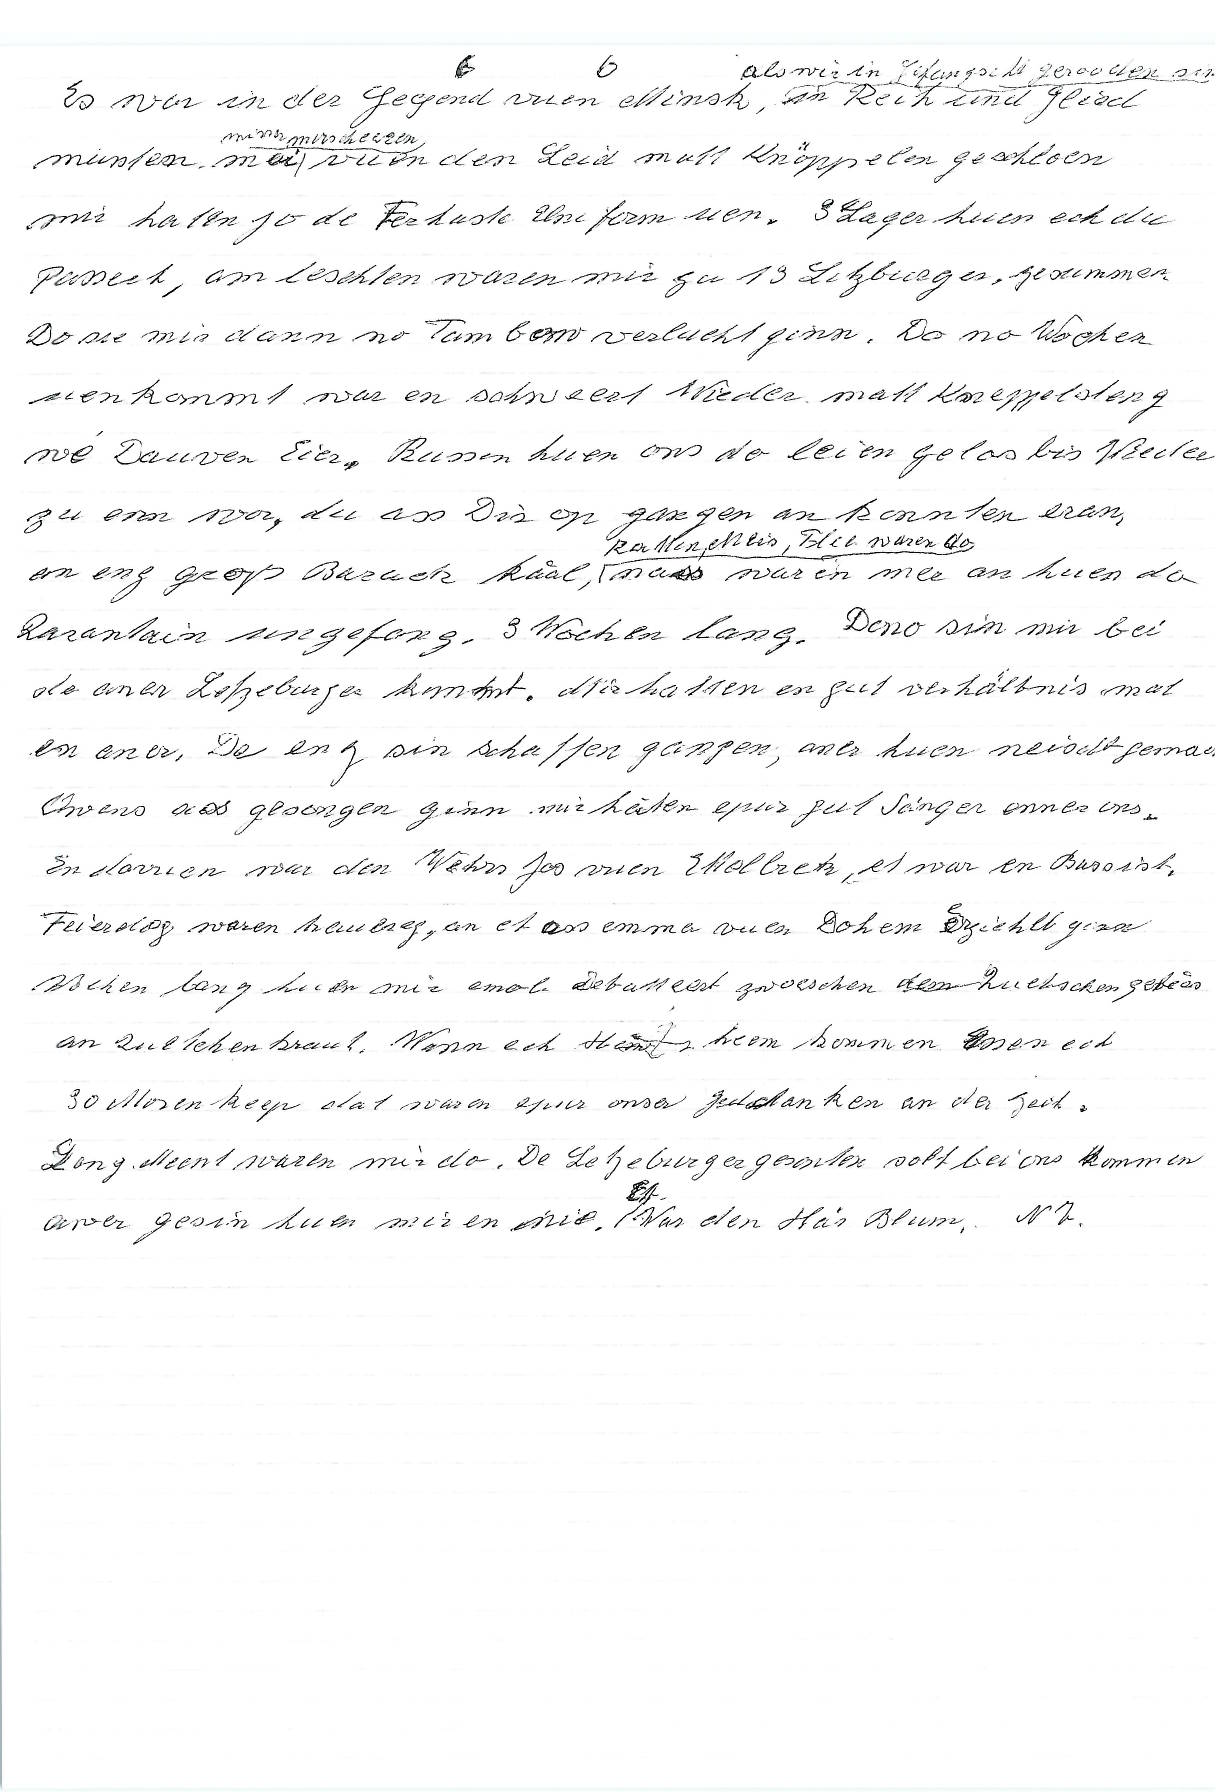 6 6 als wir in Gefangscht gerooden sin
Es war in der Gegend vuen Minsk, in Reih und Glied
mir marscheieren
musten vuen den Leid matt Knöppelen geschloen
mir haten jo de Ferhaste Uniform uen. 3 Lager huen ech du
passeet, am leschten waren mir zu 13 Letzburger, zesummen
Do sie mir dann no Tambow verlucht ginn. Do no Wochen
uenkommt war en schweert Wieder matt Kneppelsteng
wé Dauven Eier. Russen huen ons do leien gelos bis Wieder
zu enn wor, du ass Dir op gangen an konnten eran,
Ratten, Meis, Flie waren do
an eng groß Barack kaal, nass waren mer an huen do
Qarantain ungefong. 3 Wochen lang. Dono sin mir bei
de aner Letzeburger kommt. Mir hatten en gut verhältnis mat
en aner. De eng sin schaffen gangen, aner huen neischt gemac
Owens ass gesongen ginn mir háten epur gut Sänger enner ons.
En dovuen war den Wehrs Jos vuen Wolbreck, et war en Bassist.
Feierdog waren traureg, an et ass emma vuen Dohem erziehlt ginn
Wochen lang huen mir emol Debatteert zwoeschen den Quetschengebeess
an Quetchenkraut. Wann ech heem kommen essen ech
30 Moren keep dat waren epur onser gedanken an der Zeit.
Long Meent waren mir do. De Letzeburger gesanten solt bei ons kommen
Et
awer gesin huen mir en nie. War den Hár Blum. N Z.